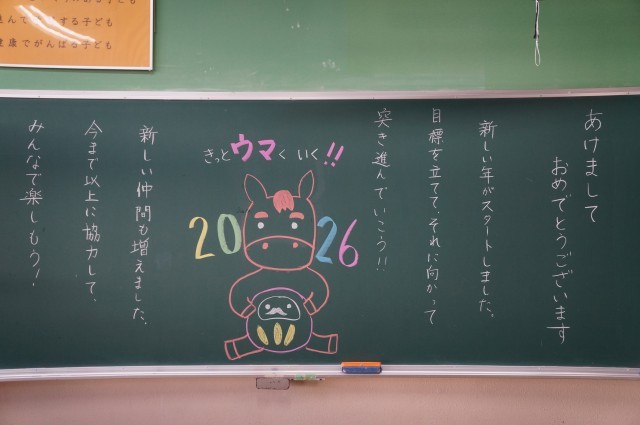 進んで
する子ども
健康でがんばる子ども
あけまして
おめでとうございます
新しい年がスタートしました。
目標を立てて、それに向かって
突き進んでいこう!!
きっとウマくいく!!
2026
新しい仲間も増えました。
今まで以上に協力して、
みんなで楽しもう!